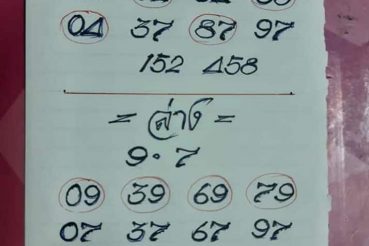 04 37 87 97
152 458
= ล่าง =
9. 7
09 39 69 79
07 37 67 97